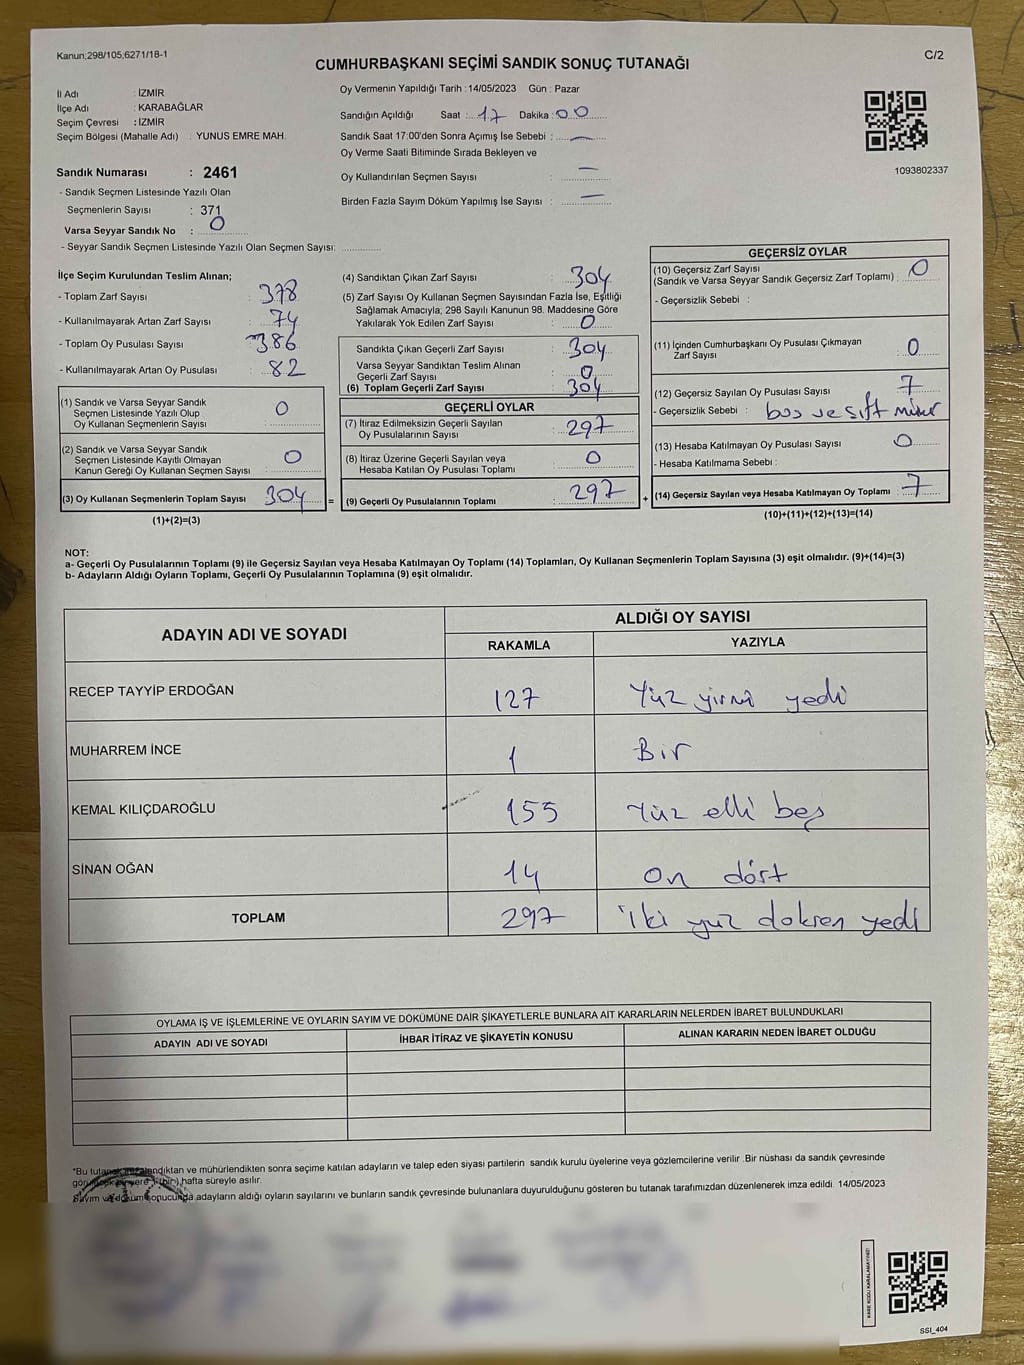 Kanun;298/105;6271/18-1
C/2
CUMHURBAŞKANI SEÇİMİ SANDIK SONUÇ TUTANAĞI
İl Adı : İZMİR
İlçe Adı : KARABAĞLAR
Seçim Çevresi : İZMİR
Seçim Bölgesi (Mahalle Adı) : YUNUS EMRE MAH.
Sandık Numarası : 2461
- Sandık Seçmen Listesinde Yazılı Olan
Seçmenlerin Sayısı : 371
Varsa Seyyar Sandık No : 0
- Seyyar Sandık Seçmen Listesinde Yazılı Olan Seçmen Sayısı:
Oy Vermenin Yapıldığı Tarih : 14/05/2023 Gün : Pazar
Sandığın Açıldığı Saat : 17 Dakika : 00
Sandık Saat 17:00'den Sonra Açımış İse Sebebi : —
Oy Verme Saati Bitiminde Sırada Bekleyen ve
Oy Kullandırılan Seçmen Sayısı : —
Birden Fazla Sayım Döküm Yapılmış İse Sayısı : —
1093802337
İlçe Seçim Kurulundan Teslim Alınan;
- Toplam Zarf Sayısı : 378
- Kullanılmayarak Artan Zarf Sayısı : 74
- Toplam Oy Pusulası Sayısı : 386
- Kullanılmayarak Artan Oy Pusulası : 82
(1) Sandık ve Varsa Seyyar Sandık
Seçmen Listesinde Yazılı Olup
Oy Kullanan Seçmenlerin Sayısı : 0
(2) Sandık ve Varsa Seyyar Sandık
Seçmen Listesinde Kayıtlı Olmayan
Kanun Gereği Oy Kullanan Seçmen Sayısı : 0
(3) Oy Kullanan Seçmenlerin Toplam Sayısı 304 =
(1)+(2)=(3)
(4) Sandıktan Çıkan Zarf Sayısı : 304
(5) Zarf Sayısı Oy Kullanan Seçmen Sayısından Fazla İse, Eşitliği
Sağlamak Amacıyla; 298 Sayılı Kanunun 98. Maddesine Göre
Yakılarak Yok Edilen Zarf Sayısı : 0
Sandıkta Çıkan Geçerli Zarf Sayısı : 304
Varsa Seyyar Sandıktan Teslim Alınan
Geçerli Zarf Sayısı : 0
(6) Toplam Geçerli Zarf Sayısı : 304
GEÇERLİ OYLAR
(7) İtiraz Edilmeksizin Geçerli Sayılan
Oy Pusulalarının Sayısı : 297
(8) İtiraz Üzerine Geçerli Sayılan veya
Hesaba Katılan Oy Pusulası Toplamı : 0
(9) Geçerli Oy Pusulalarının Toplamı : 297 +
GEÇERSİZ OYLAR
(10) Geçersiz Zarf Sayısı
(Sandık ve Varsa Seyyar Sandık Geçersiz Zarf Toplamı) : 0
- Geçersizlik Sebebi :
(11) İçinden Cumhurbaşkanı Oy Pusulası Çıkmayan
Zarf Sayısı : 0
(12) Geçersiz Sayılan Oy Pusulası Sayısı : 7
- Geçersizlik Sebebi : boş ve
(13) Hesaba Katılmayan Oy Pusulası Sayısı : 0
- Hesaba Katılmama Sebebi :
(14) Geçersiz Sayılan veya Hesaba Katılmayan Oy Toplamı : 7
(10)+(11)+(12)+(13)=(14)
NOT:
a- Geçerli Oy Pusulalarının Toplamı (9) ile Geçersiz Sayılan veya Hesaba Katılmayan Oy Toplamı (14) Toplamları, Oy Kullanan Seçmenlerin Toplam Sayısına (3) eşit olmalıdır. (9)+(14)=(3)
b- Adayların Aldığı Oyların Toplamı, Geçerli Oy Pusulalarının Toplamına (9) eşit olmalıdır.
ADAYIN ADI VE SOYADI
ALDIĞI OY SAYISI
RAKAMLA YAZIYLA
RECEP TAYYİP ERDOĞAN 127 Yüz yirmi yedi
MUHARREM İNCE 1 Bir
KEMAL KILIÇDAROĞLU 155 Yüz elli beş
SİNAN OĞAN 14 On dört
TOPLAM 297 İki yüz doksan yedi
OYLAMA İŞ VE İŞLEMLERİNE VE OYLARIN SAYIM VE DÖKÜMÜNE DAİR ŞİKAYETLERLE BUNLARA AİT KARARLARIN NELERDEN İBARET BULUNDUKLARI
ADAYIN ADI VE SOYADI İHBAR İTİRAZ VE ŞİKAYETİN KONUSU ALINAN KARARIN NEDEN İBARET OLDUĞU
*Bu tutanak imzalandıktan ve mühürlendikten sonra seçime katılan adayların ve talep eden siyasi partilerin sandık kurulu üyelerine veya gözlemcilerine verilir. Bir nüshası da sandık çevresinde
görülecek bir yere 1 (bir) hafta süreyle asılır.
Sayım ve döküm sonucunda adayların aldığı oyların sayılarını ve bunların sandık çevresinde bulunanlara duyurulduğunu gösteren bu tutanak tarafımızdan düzenlenerek imza edildi. 14/05/2023
KARE KODU KARALAMAYINIZ!
SSİ_404